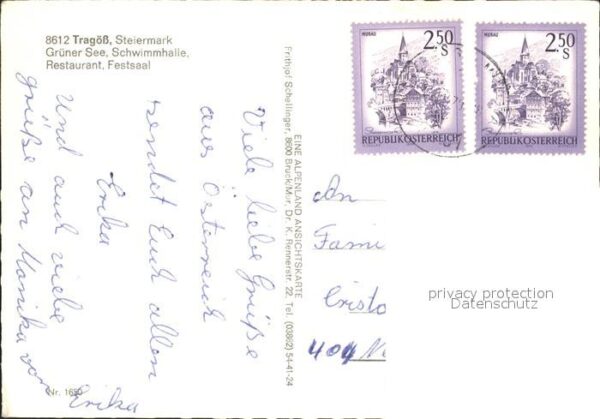 8612 Tragöß, Steiermark
Grüner See, Schwimmhalle,
Restaurant, Festsaal
Viele liebe Grüße
aus Österreich
sendet Euch allen
Erika
Und auch viele
grüße an Monika von
Erika
Nr. 1650
EINE ALPENLAND ANSICHTSKARTE
Frithjof Schellinger, 8600 Bruck/Mur, Dr. K. Rennerstr. 22, Tel. (03862) 54-41-24
MURAU
2,50
S
REPUBLIK ÖSTERREICH
MURAU
2,50
S
REPUBLIK ÖSTERREICH
An
Fami
Cristo
404
privacy protection
Datenschutz